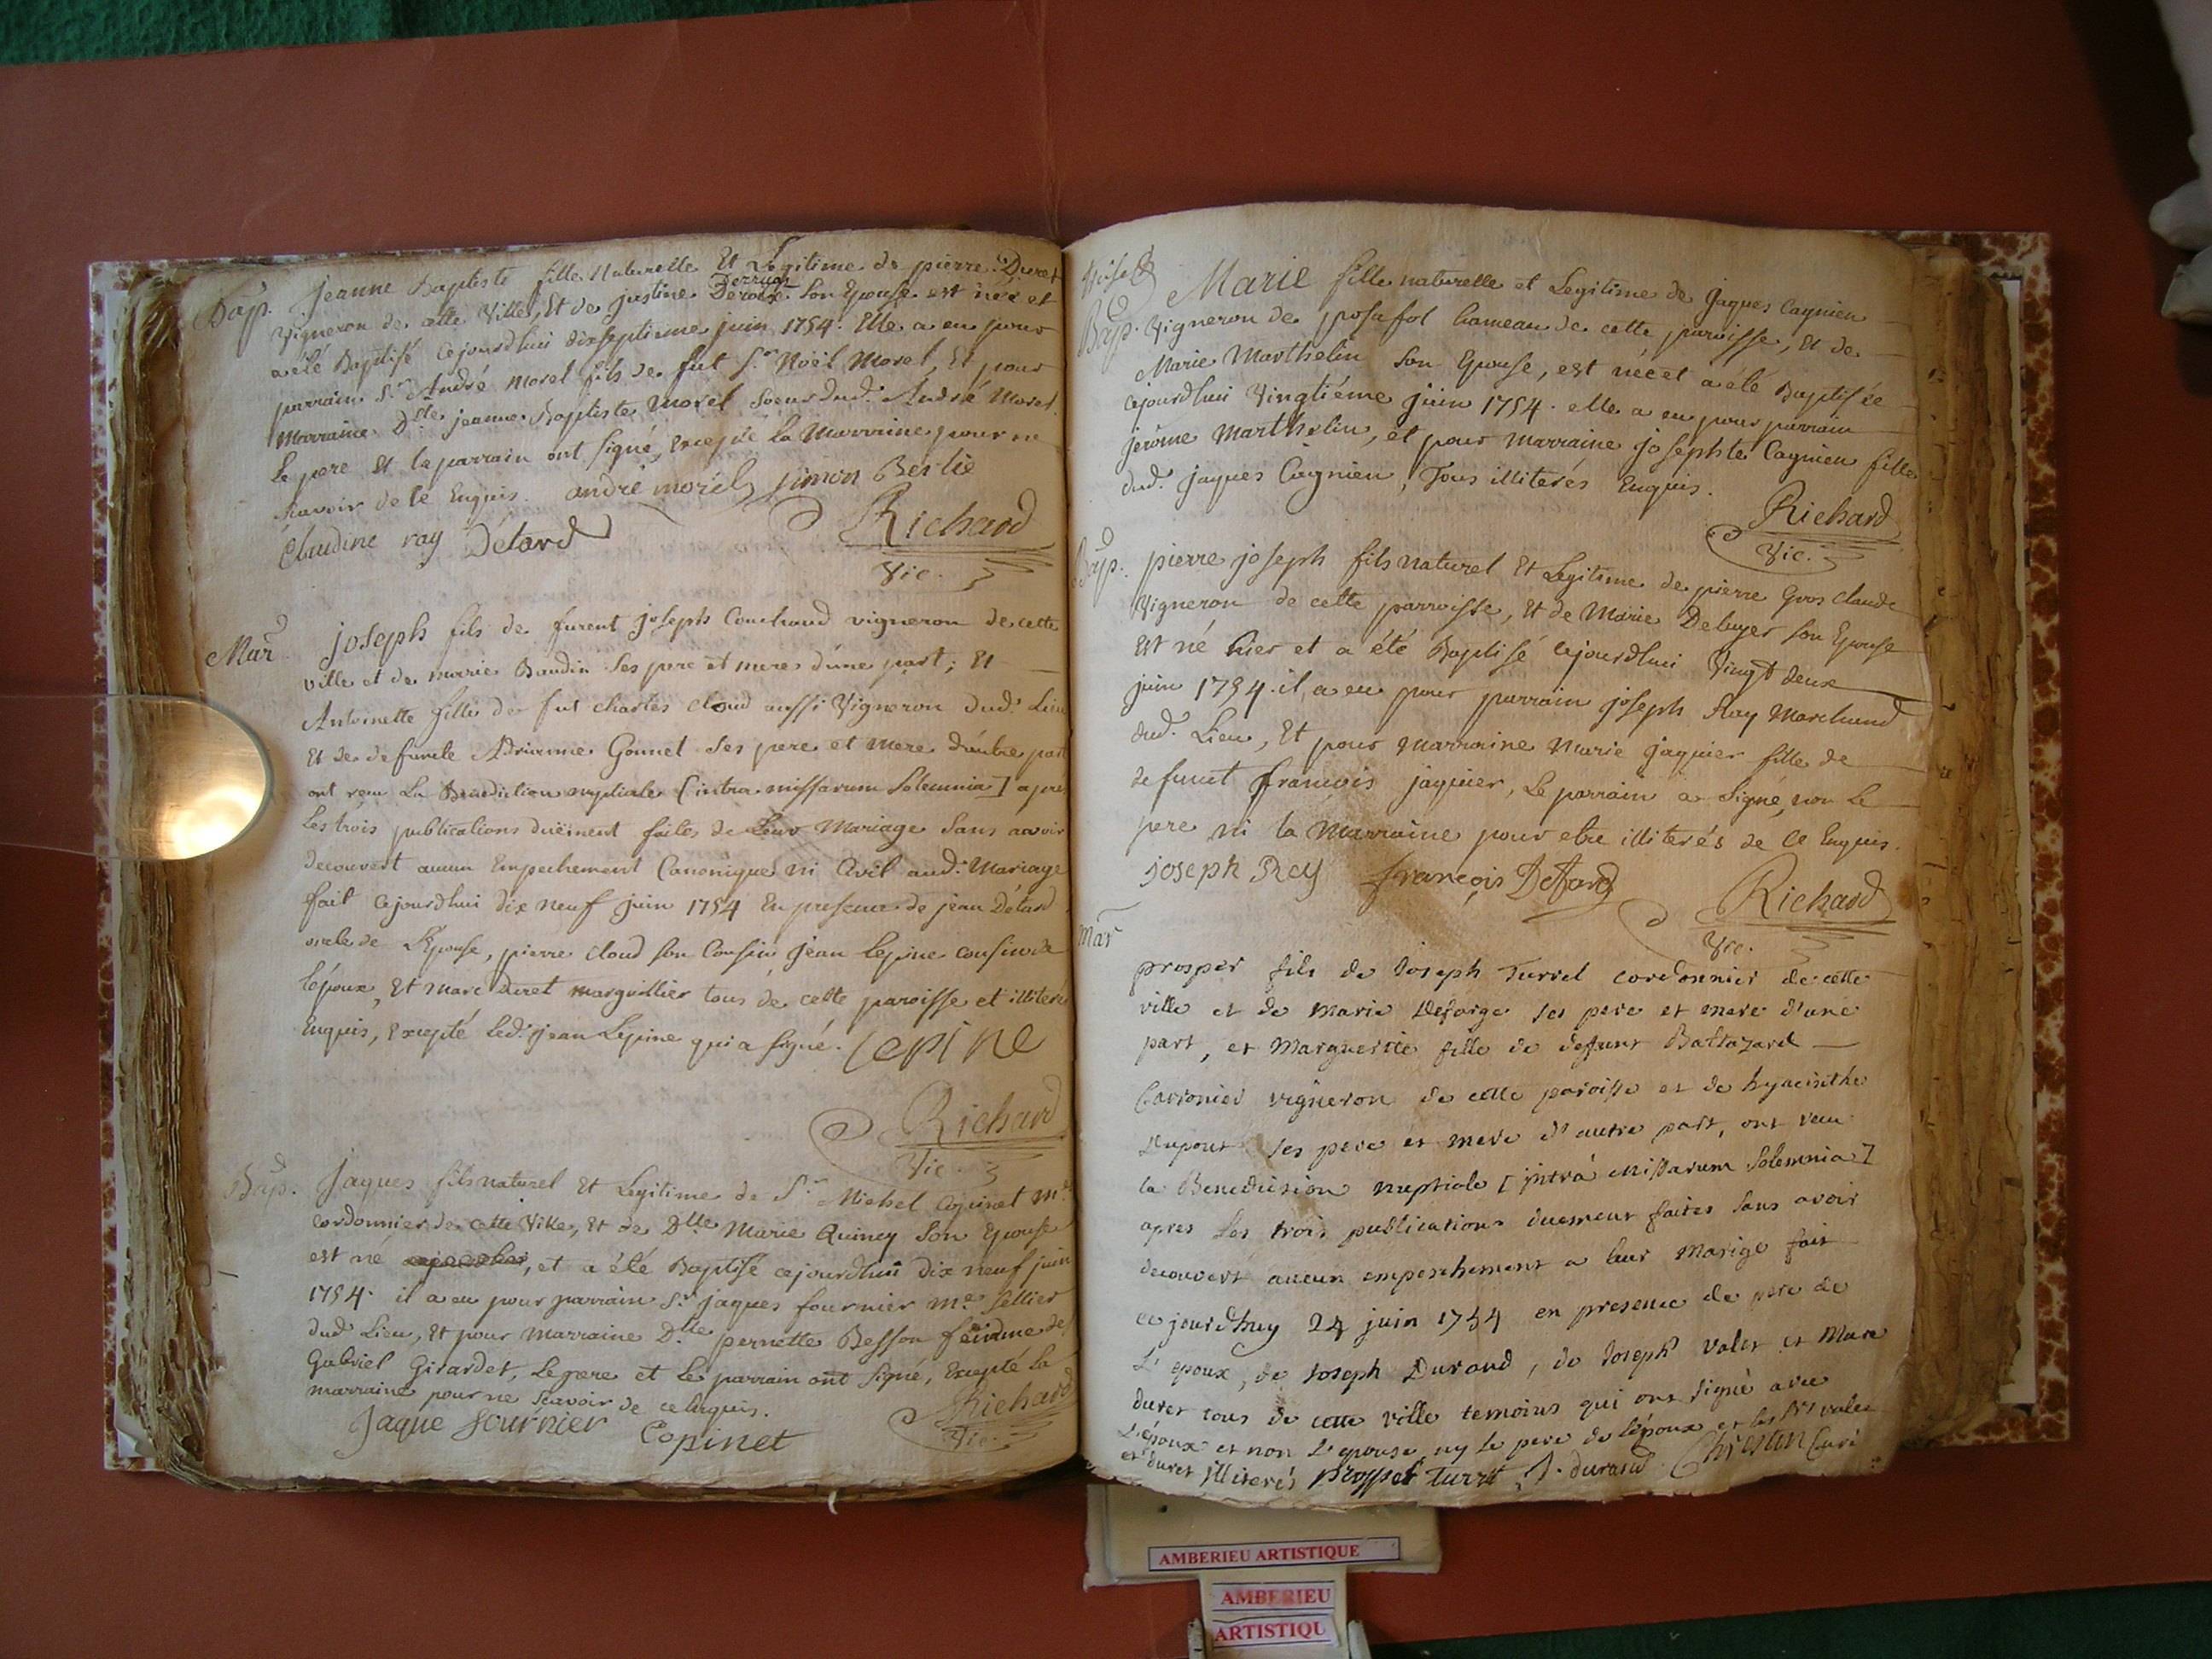 Bap. Jeanne Baptiste fille Naturelle Et Legitime de pierre Duret
Vigneron de cette Ville, Et de justine Deroux Son Epouse est née et
a été Baptisé cejourdhui dixseptieme juin 1754. Elle a eu pour
parrain Sr André Morel fils de fut Sr Noël Morel, Et pour
Marraine Dlle jeanne Baptiste Morel Soeur dud. André Morel.
Le pere Et le parrain ont signé, Excepté la Marraine pour ne
scavoir de ce Enquis. andré morel simon Berlie
Claudine ray Détard Richard
Vic.
Mar joseph fils de furent joseph Couchaud vigneron de cette
ville et de marie Baudin Ses pere et mere d'une part; Et
Antoinette fille de fut charles cloud aussi Vigneron dud. Lieu
Et de defuncte Adrianne Gonnet Ses pere et mere d'autre part
ont recu La Benediction nuptiale [intra missarum Solemnia] aprés
Les trois publications duëment faites de Leur Mariage Sans avoir
decouvert aucun Empechement Canonique ni Civil aud. Mariage
fait cejourdhui dix neuf juin 1754 En presence de jean Détard
oncle de L'Epouse, pierre cloud son Cousin jean lepine cousin de
lépoux, Et marc duret marguillier tous de cette paroisse et illiterés
Enquis, Excepté led. jean Lepine qui a signé. lepine
Richard
Vic.
Bap. Jaques fils naturel Et Legitime de Sr Michel Copinet me
cordonnier de cette Ville, Et de Dlle Marie Quincy Son Epouse
est né, et a été Baptisé cejourdhui dix neuf juin
1754. il a eu pour parrain Sr jaques fournier me Sellier
dud Lieu, Et pour Marraine Dlle pernette Besson femme de
Gabriel Girardet, Le pere et Le parrain ont signé, Excepté la
marraine pour ne scavoir de ce Enquis. Richard
Jaque fournier Copinet Vic.
Bap. Marie fille naturelle et Legitime de jaques Cagnien
Vigneron de posafol hameau de cette paroisse, Et de
Marie Marthelin Son Epouse, est née et a été Baptisée
cejourdhui Vingtiéme juin 1754. elle a eu pour parrain
jerôme Marthelin, et pour marraine josephte Cagnien fille
dud. jaques Cagnien, Tous illiterés Enquis.
Richard
Vic.
Bap. pierre joseph fils naturel Et Legitime de pierre Gros claude
Vigneron de cette parroisse, Et de Marie Debuyer Son Epouse
Est né hier et a été Baptisé cejourdhui Vingt deux
juin 1754. il a eu pour parrain joseph Ray Marchand
dud. Lieu, Et pour marraine Marie jaquier fille de
defunct francois jaquier, Le parrain a signé, non Le
pere ni la Marraine pour etre illiterés de ce Enquis.
joseph Rey françois Detard Richard
Vic.
Mar
prosper fils de Joseph Turrel cordonnier de cette
ville et de Marie Deforge ses pere et mere d'une
part, et Marguerite fille de defunt Baltazard
Carronier vigneron de cette paroisse et de hyacinthe
Dupont ses pere et mere d'autre part, ont recu
la Benediction nuptiale [intrà Missarum Solemnia]
apres Les trois publications duement faites sans avoir
decouvert aucun empeschement a leur Mariage fait
ce jourdhuy 24 juin 1754 en presence de pere de
L'epoux, de Joseph Durand, de Joseph Valet et Marc
duret tous de cette ville temoins qui ont signé avec
L'époux et non L'epouse ny le pere de l'époux et les Srs valet
et duret illiterés prosper turrel J. durand Chrestin Curé
AMBERIEU ARTISTIQUE
AMBERIEU
ARTISTIQU